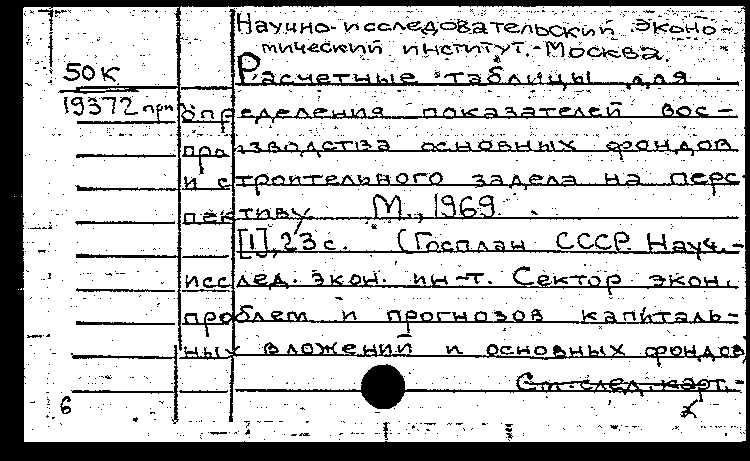 Научно-исследовательский эконо-
мический институт.-Москва.
50к
Расчетные таблицы для
19372 прп
определения показателей вос-
производства основных фондов
и строительного задела на перс
пективу. М., 1969.
[1], 23 с. (Госплан СССР. Науч.-
исслед. экон. ин-т. Сектор экон.
проблем и прогнозов капиталь-
ных вложений и основных фондов
См. след. карт. -
6